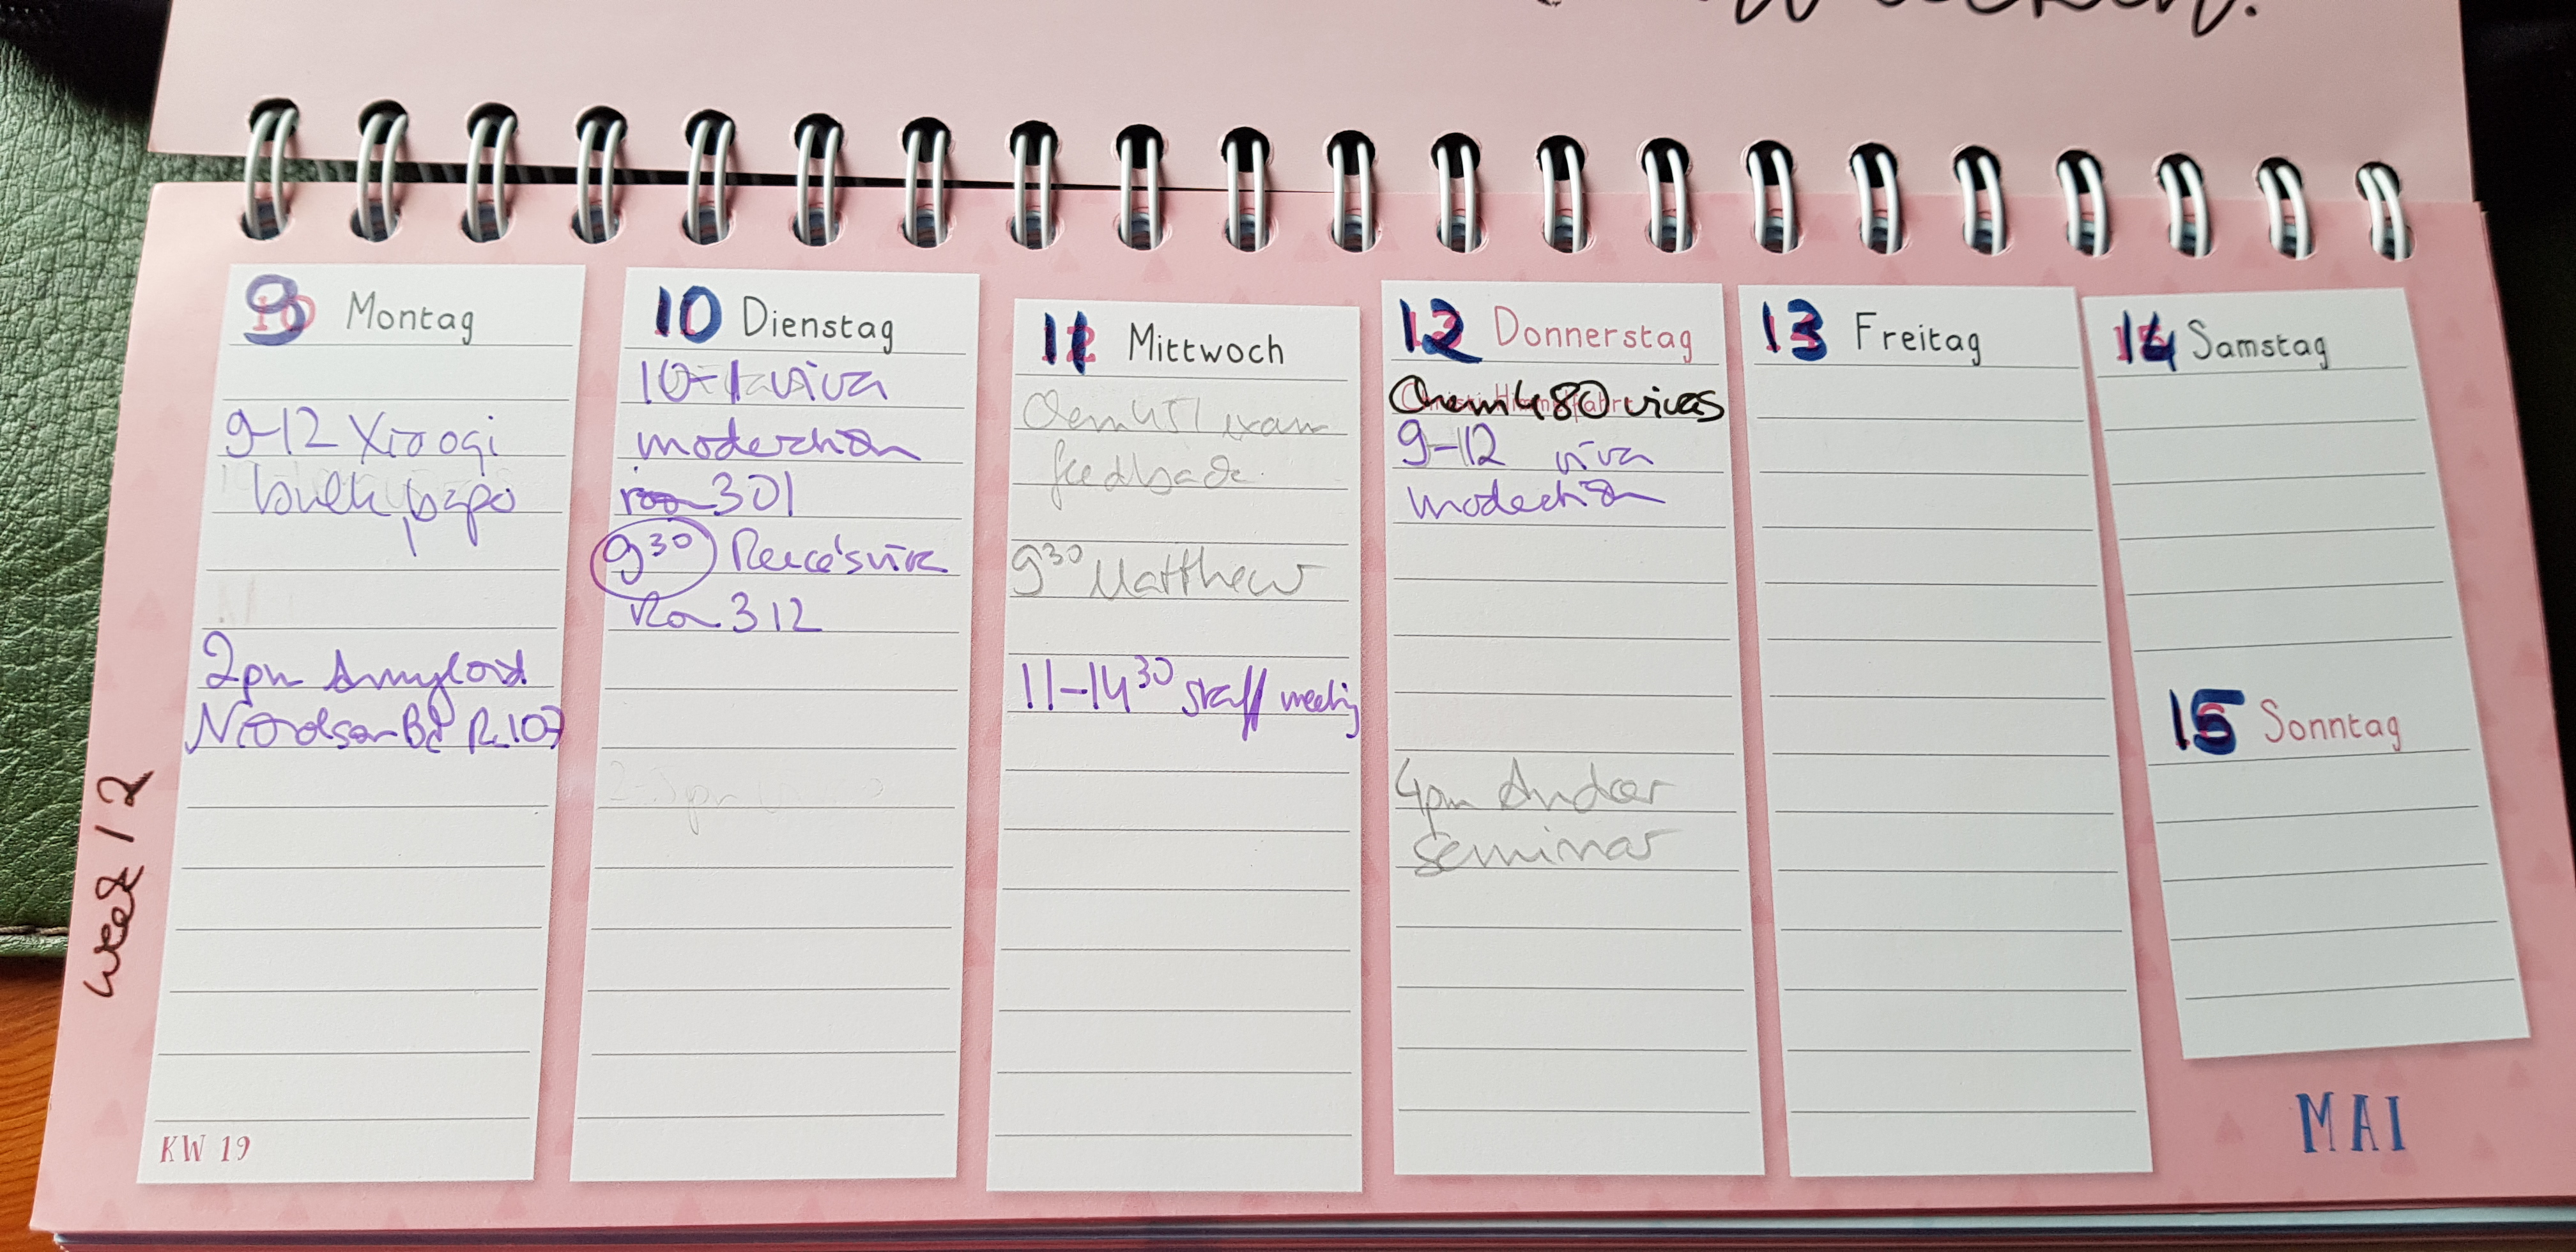 9 Montag
9-12 Xiaoqi
2pm Amyloid
R.107
10 Dienstag
10-1 viva
moderation
room 301
9³⁰
Rm 312
11 Mittwoch
Chem 451 exam
feedback
9³⁰ Matthew
11-14³⁰ staff meeting
12 Donnerstag
Chem 480 vivas
9-12 viva
moderation
4pm
seminar
13 Freitag
14 Samstag
15 Sonntag
week 12
KW 19
MAI